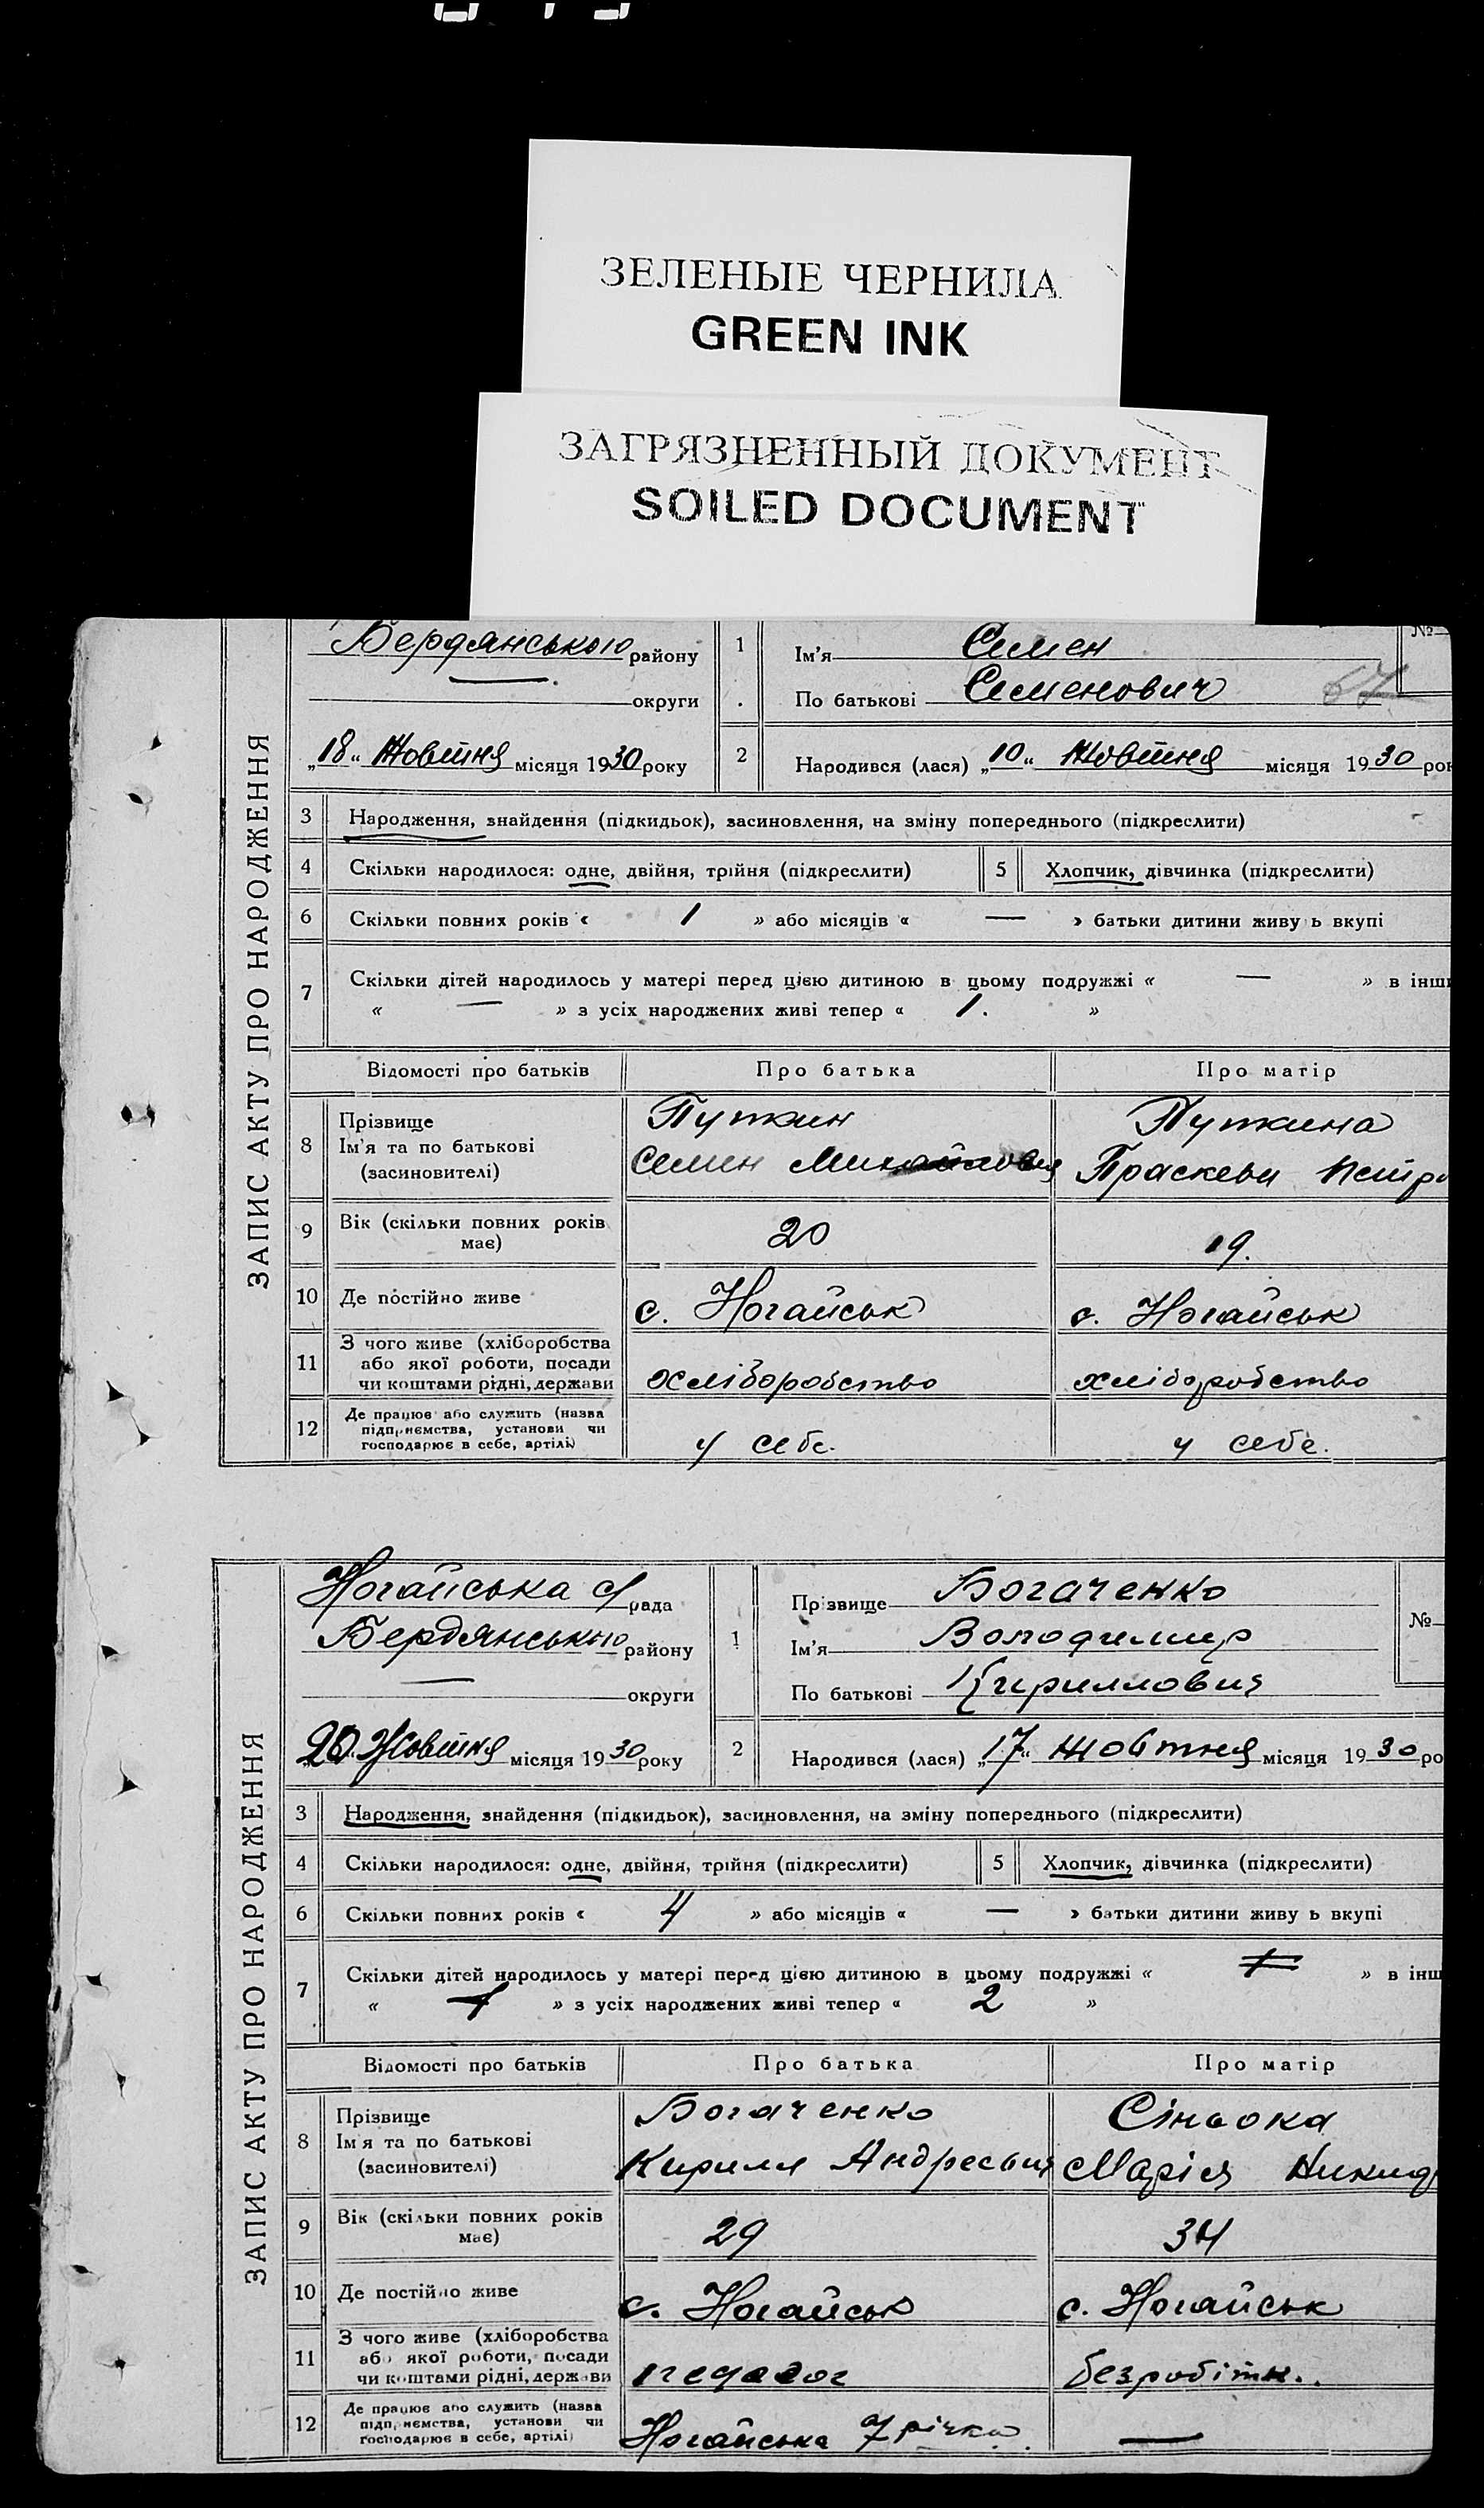 ЗЕЛЕНЫЕ ЧЕРНИЛА
GREEN INK
ЗАГРЯЗНЕННЫЙ ДОКУМЕНТ
SOILED DOCUMENT
ЗАПИС АКТУ ПРО НАРОДЖЕННЯ
Бердянського району
округи
„18“ Жовтня місяця 1930 року
1 Ім'я Семен
По батькові Семенович
№
67
2 Народився (лася) „10“ Жовтня місяця 1930 рок
3 Народження, знайдення (підкидьок), засиновлення, на зміну попереднього (підкреслити)
4 Скільки народилося: одне, двійня, трійня (підкреслити) 5 Хлопчик, дівчинка (підкреслити)
6 Скільки повних років « 1 » або місяців « — » батьки дитини живу ь вкупі
7 Скільки дітей народилось у матері перед цією дитиною в цьому подружжі « — » в інш
« — » з усіх народжених живі тепер « 1. »
Відомості про батьків Про батька Про матір
8 Прізвище Ім'я та по батькові (засиновителі)
Путкин
Семен Михайлович
Путкина
Праскеви Петро
9 Вік (скільки повних років має) 20 19.
10 Де постійно живе с. Ногайськ с. Ногайськ
11 З чого живе (хліборобства або якої роботи, посади чи коштами рідні, держави хліборобство хліборобство
12 Де працює або служить (назва підприємства, установи чи господарює в себе, артілі) у себе. у себе.
ЗАПИС АКТУ ПРО НАРОДЖЕННЯ
Ногайська с/рада
Бердянського району
— округи
„20“ Жовтня місяця 1930 року
1 Прізвище Богаченко
Ім'я Володимир
По батькові Кириллович
№
2 Народився (лася) „17“ жовтня місяця 1930 ро
3 Народження, знайдення (підкидьок), засиновлення, на зміну попереднього (підкреслити)
4 Скільки народилося: одне, двійня, трійня (підкреслити) 5 Хлопчик, дівчинка (підкреслити)
6 Скільки повних років « 4 » або місяців « — » батьки дитини живу ь вкупі
7 Скільки дітей народилось у матері перед цією дитиною в цьому подружжі « » в інш
« 1 » з усіх народжених живі тепер « 2 »
Відомості про батьків Про батька Про матір
8 Прізвище Ім'я та по батькові (засиновителі)
Богаченко
Кирилл Андреевич
Сіньока
Марія Никид
9 Вік (скільки повних років має) 29 34
10 Де постійно живе с. Ногайськ с. Ногайськ
11 З чого живе (хліборобства або якої роботи, посади чи коштами рідні, держави педагог безробітн.
12 Де працює або служить (назва підприємства, установи чи господарює в себе, артілі) Ногайська 7 річка. —